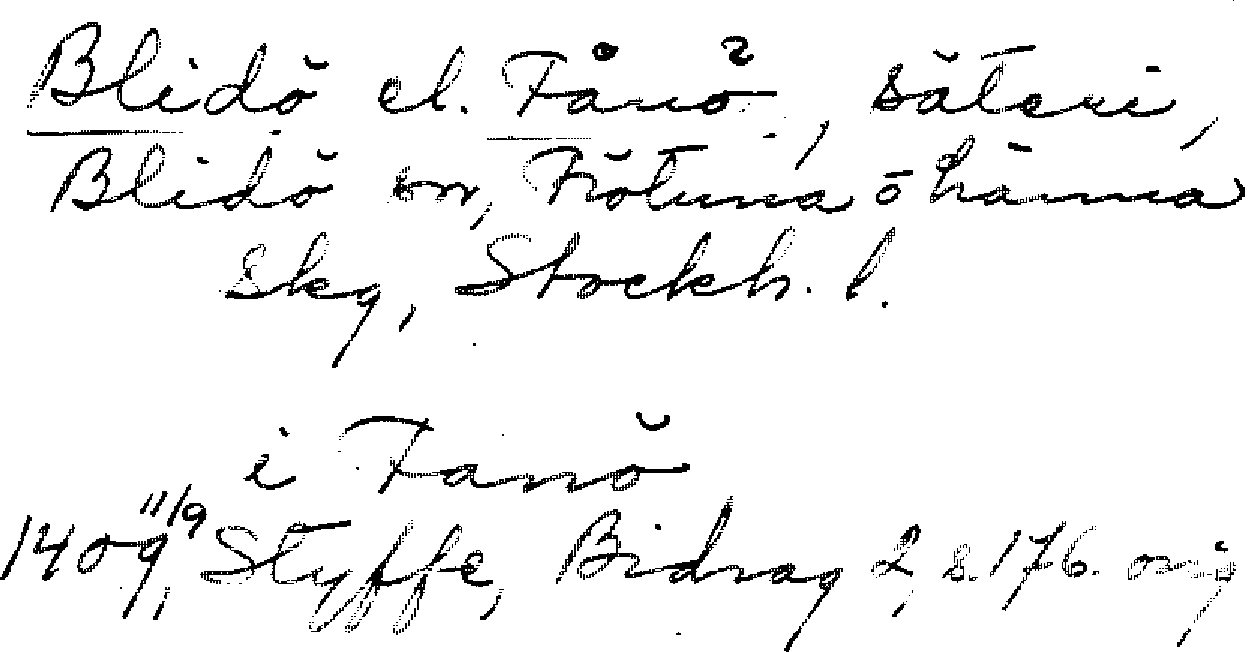 Blidö el. Fånö, säteri,
Blidö sn, Frötuna o länna
Skg, Stockh. l.
i Fanö
1409 11/9, Styffe, Bidrag 2, s. 176. orig